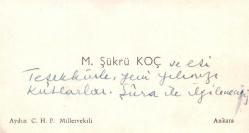 M. Şükrü KOÇ ve eşi
Teşekkürle, yeni yılınızı
kutlarlar. Şûra ile
Aydın C. H. P. Milletvekili
Ankara